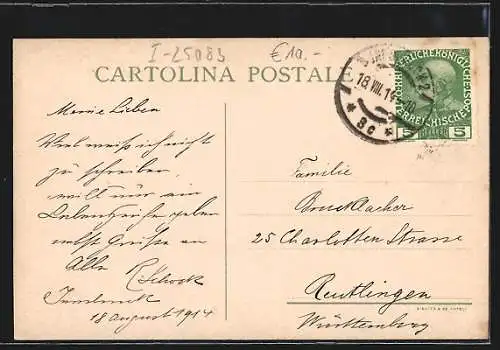 I-25083 €10.-
CARTOLINA POSTALE
18 VIII 14
* 8c *
KAISERLICHE KÖNIGLICHE
ÖSTERREICHISCHE POST
5 HELLER 5
Meine Lieben
Viel weiss ich nicht
zu schreiben
will nur ein
Lebenszeichen geben
nebst Grüssen an
Alle
R. Schock
Innsbruck
18 august 1914
Familie
Bruckbacher
25 Charlotten Strasse
Reutlingen
Württemberg